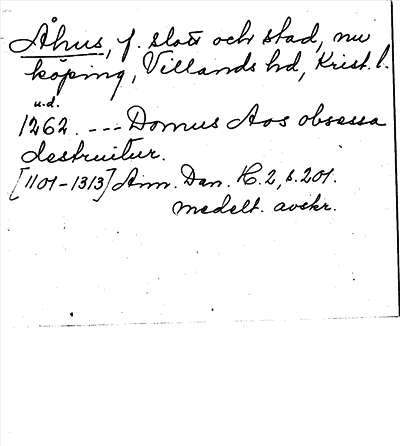 Åhus, f. slott och stad, nu
köping, Villands hd, Krist. l.
u.d.
1262. --- Domus Aos obsessa
destruitur.
[1101-1313] Ann. Dan. K. 2, s. 201.
medelt. avskr.